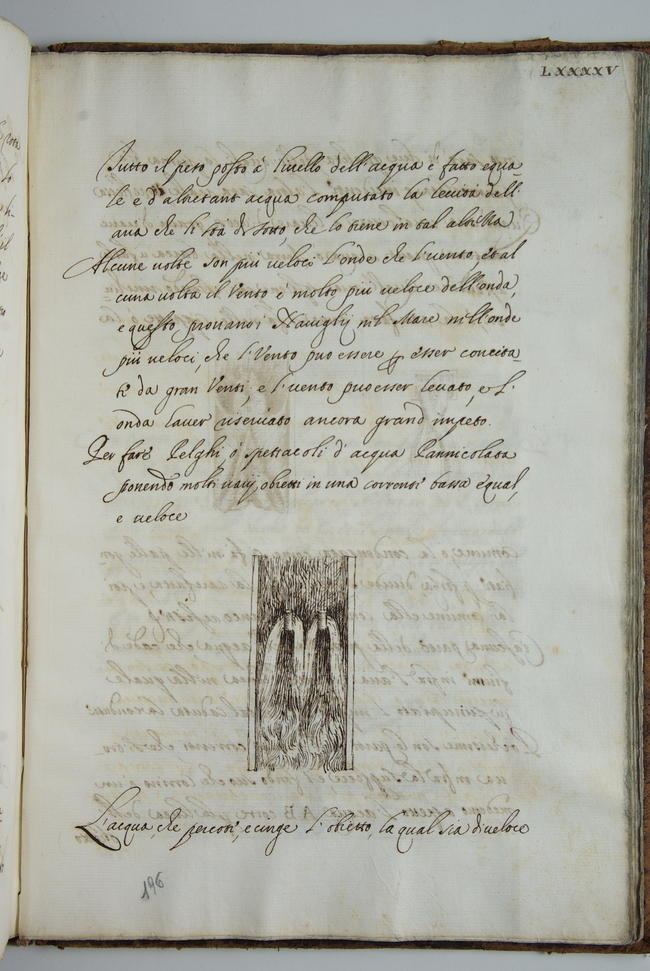 LXXXXV
Tutto il peso posto à livello dell'acqua è fatto equa-
le e d'altretant acqua computato la levità dell'
aria che li stà di sotto, che lo tiene in tal
Alcune volte son più veloci l'onde che l'vento, et al
cuna volta il Vento è molto più veloce dell'onda,
e questo provano i Naviglij nel Mare nell'onde
più veloci, che l'Vento può essere p esser concita-
te da gran Venti, e l'vento può esser levato, e l'
onda haver riservato ancora grand impeto.
Per fare Pelaghi ò spettacoli d'acqua Pannicolata
ponendo molti varij obietti in una corrente bassa equal,
e veloce
L'acqua, che percote, e cinge l'obietto, la qual sia di veloce
196